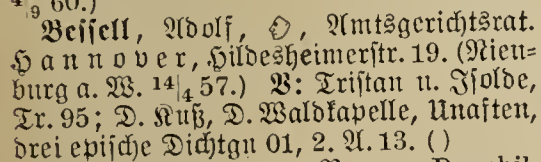 9 60.)
Beſſell, Adolf, Amtsgerichtsrat.
Hannover, Hildesheimerſtr. 19. (Nien=
burg a. W. 14/4 57.) B: Triſtan u. Iſolde,
Tr. 95; D. Kuß, D. Waldkapelle, Unaften,
drei epiſche Dichtgn 01, 2. A. 13. ()